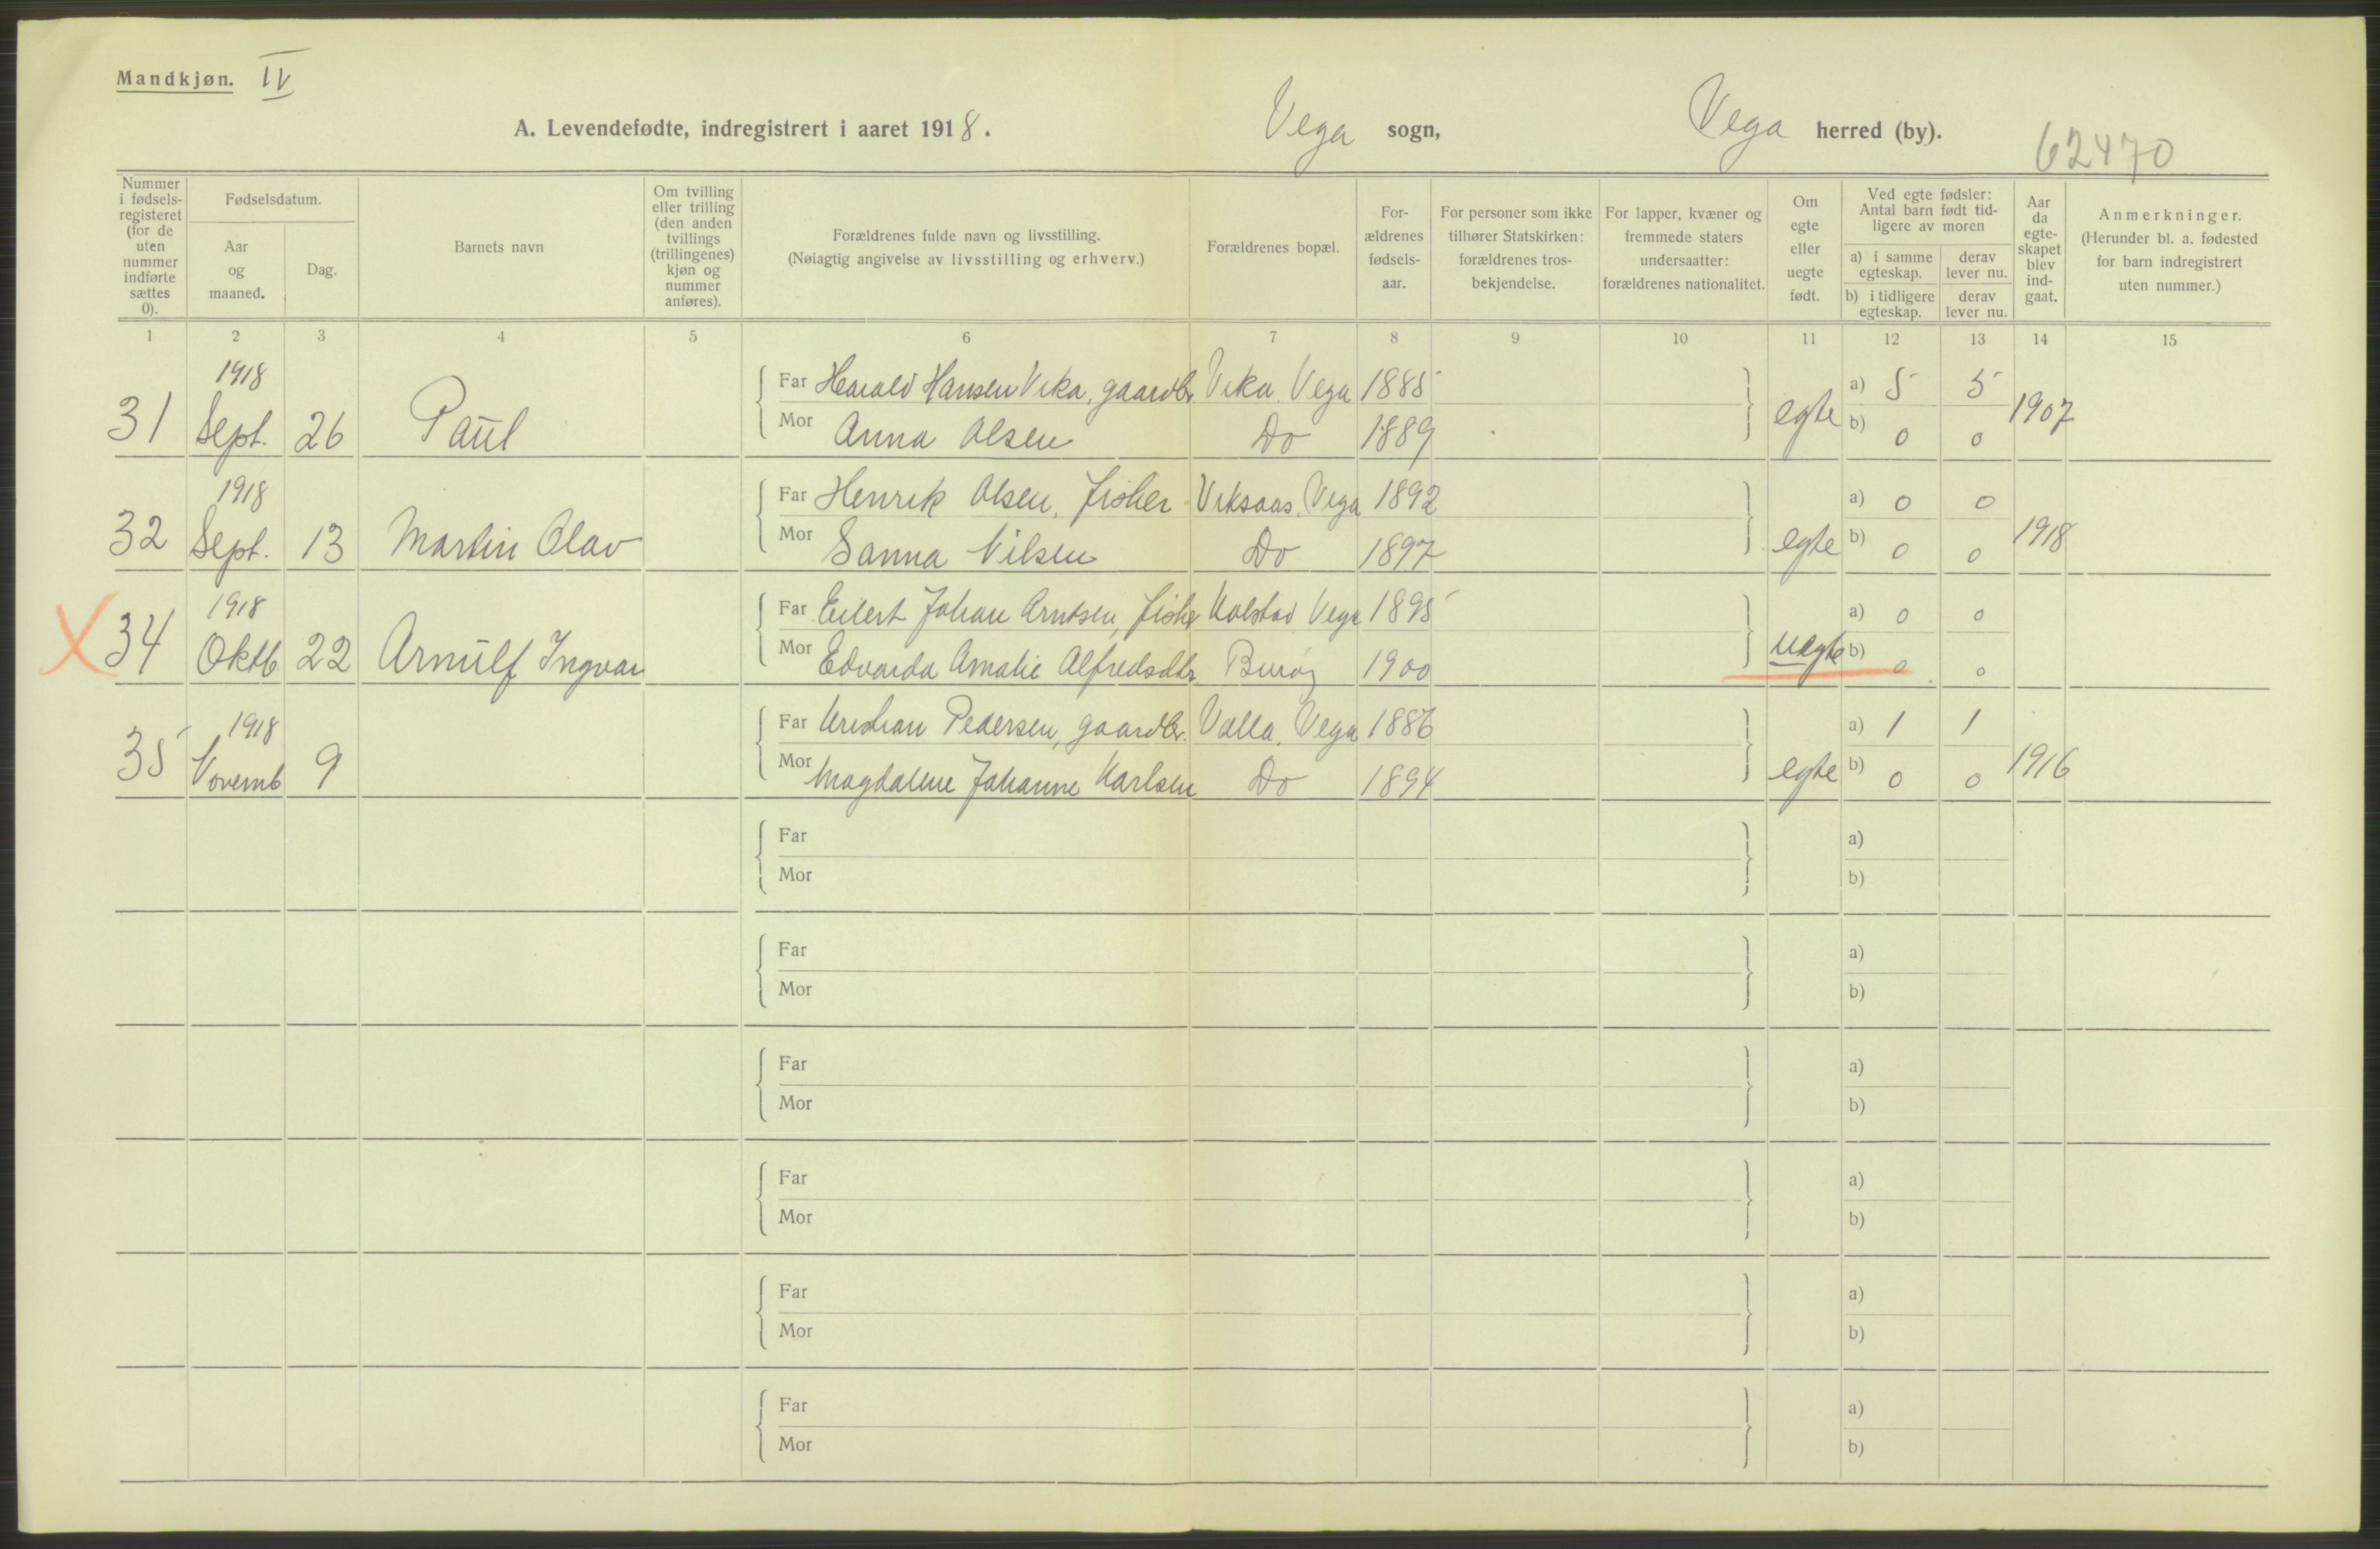 Mandkjøn. IV
A. Levendefødte, indregistrert i aaret 1918. Vega sogn, Vega herred (by). 62470
Nummer i fødsels-registeret (for de uten nummer indførte sættes 0).
Fødselsdatum.
Aar og maaned.
Dag.
Barnets navn
Om tvilling eller trilling (den anden tvillings (trillingenes) kjøn og nummer anføres).
Forældrenes fulde navn og livsstilling.
(Nøiagtig angivelse av livsstilling og erhverv.)
Forældrenes bopæl.
For-ældrenes fødsels-aar.
For personer som ikke tilhører Statskirken: forældrenes tros-bekjendelse.
For lapper, kvæner og fremmede staters undersaatter: forældrenes nationalitet.
Om egte eller uegte født.
Ved egte fødsler: Antal barn født tid-ligere av moren
a) i samme egteskap.
derav lever nu.
b) i tidligere egteskap.
derav lever nu.
Aar da egte-skapet blev ind-gaat.
Anmerkninger.
(Herunder bl. a. fødested for barn indregistrert uten nummer.)
1 2 3 4 5 6 7 8 9 10 11 12 13 14 15
1918 Far Harald Hansen Vika, gaardbr. Vika, Vega 1885 a) 5 5
31 Sept. 26 Paul Mor Anna Olsen Do 1889 egte b) 0 0 1907
1918 Far Henrik Olsen, fisker Viksaas, Vega 1892 a) 0 0
32 Sept. 13 Martin Olav Mor Sanna Nilsen Do 1897 egte b) 0 0 1918
1918 Far Eilert Johan Arntsen, fisker Kolstad Vega 1895 a) 0 0
X 34 Oktb. 22 Arnulf Ingvar Mor Edvarda Amalie Alfredsdtr. Burøy 1900 uegte b) 0 0
1918 Far Kristian Pedersen, gaardbr. Valla, Vega 1886 a) 1 1
35 Novemb 9 Mor Magdalene Johanne Karlsen Do 1894 egte b) 0 0 1916
Far a)
Mor b)
Far a)
Mor b)
Far a)
Mor b)
Far a)
Mor b)
Far a)
Mor b)
Far a)
Mor b)